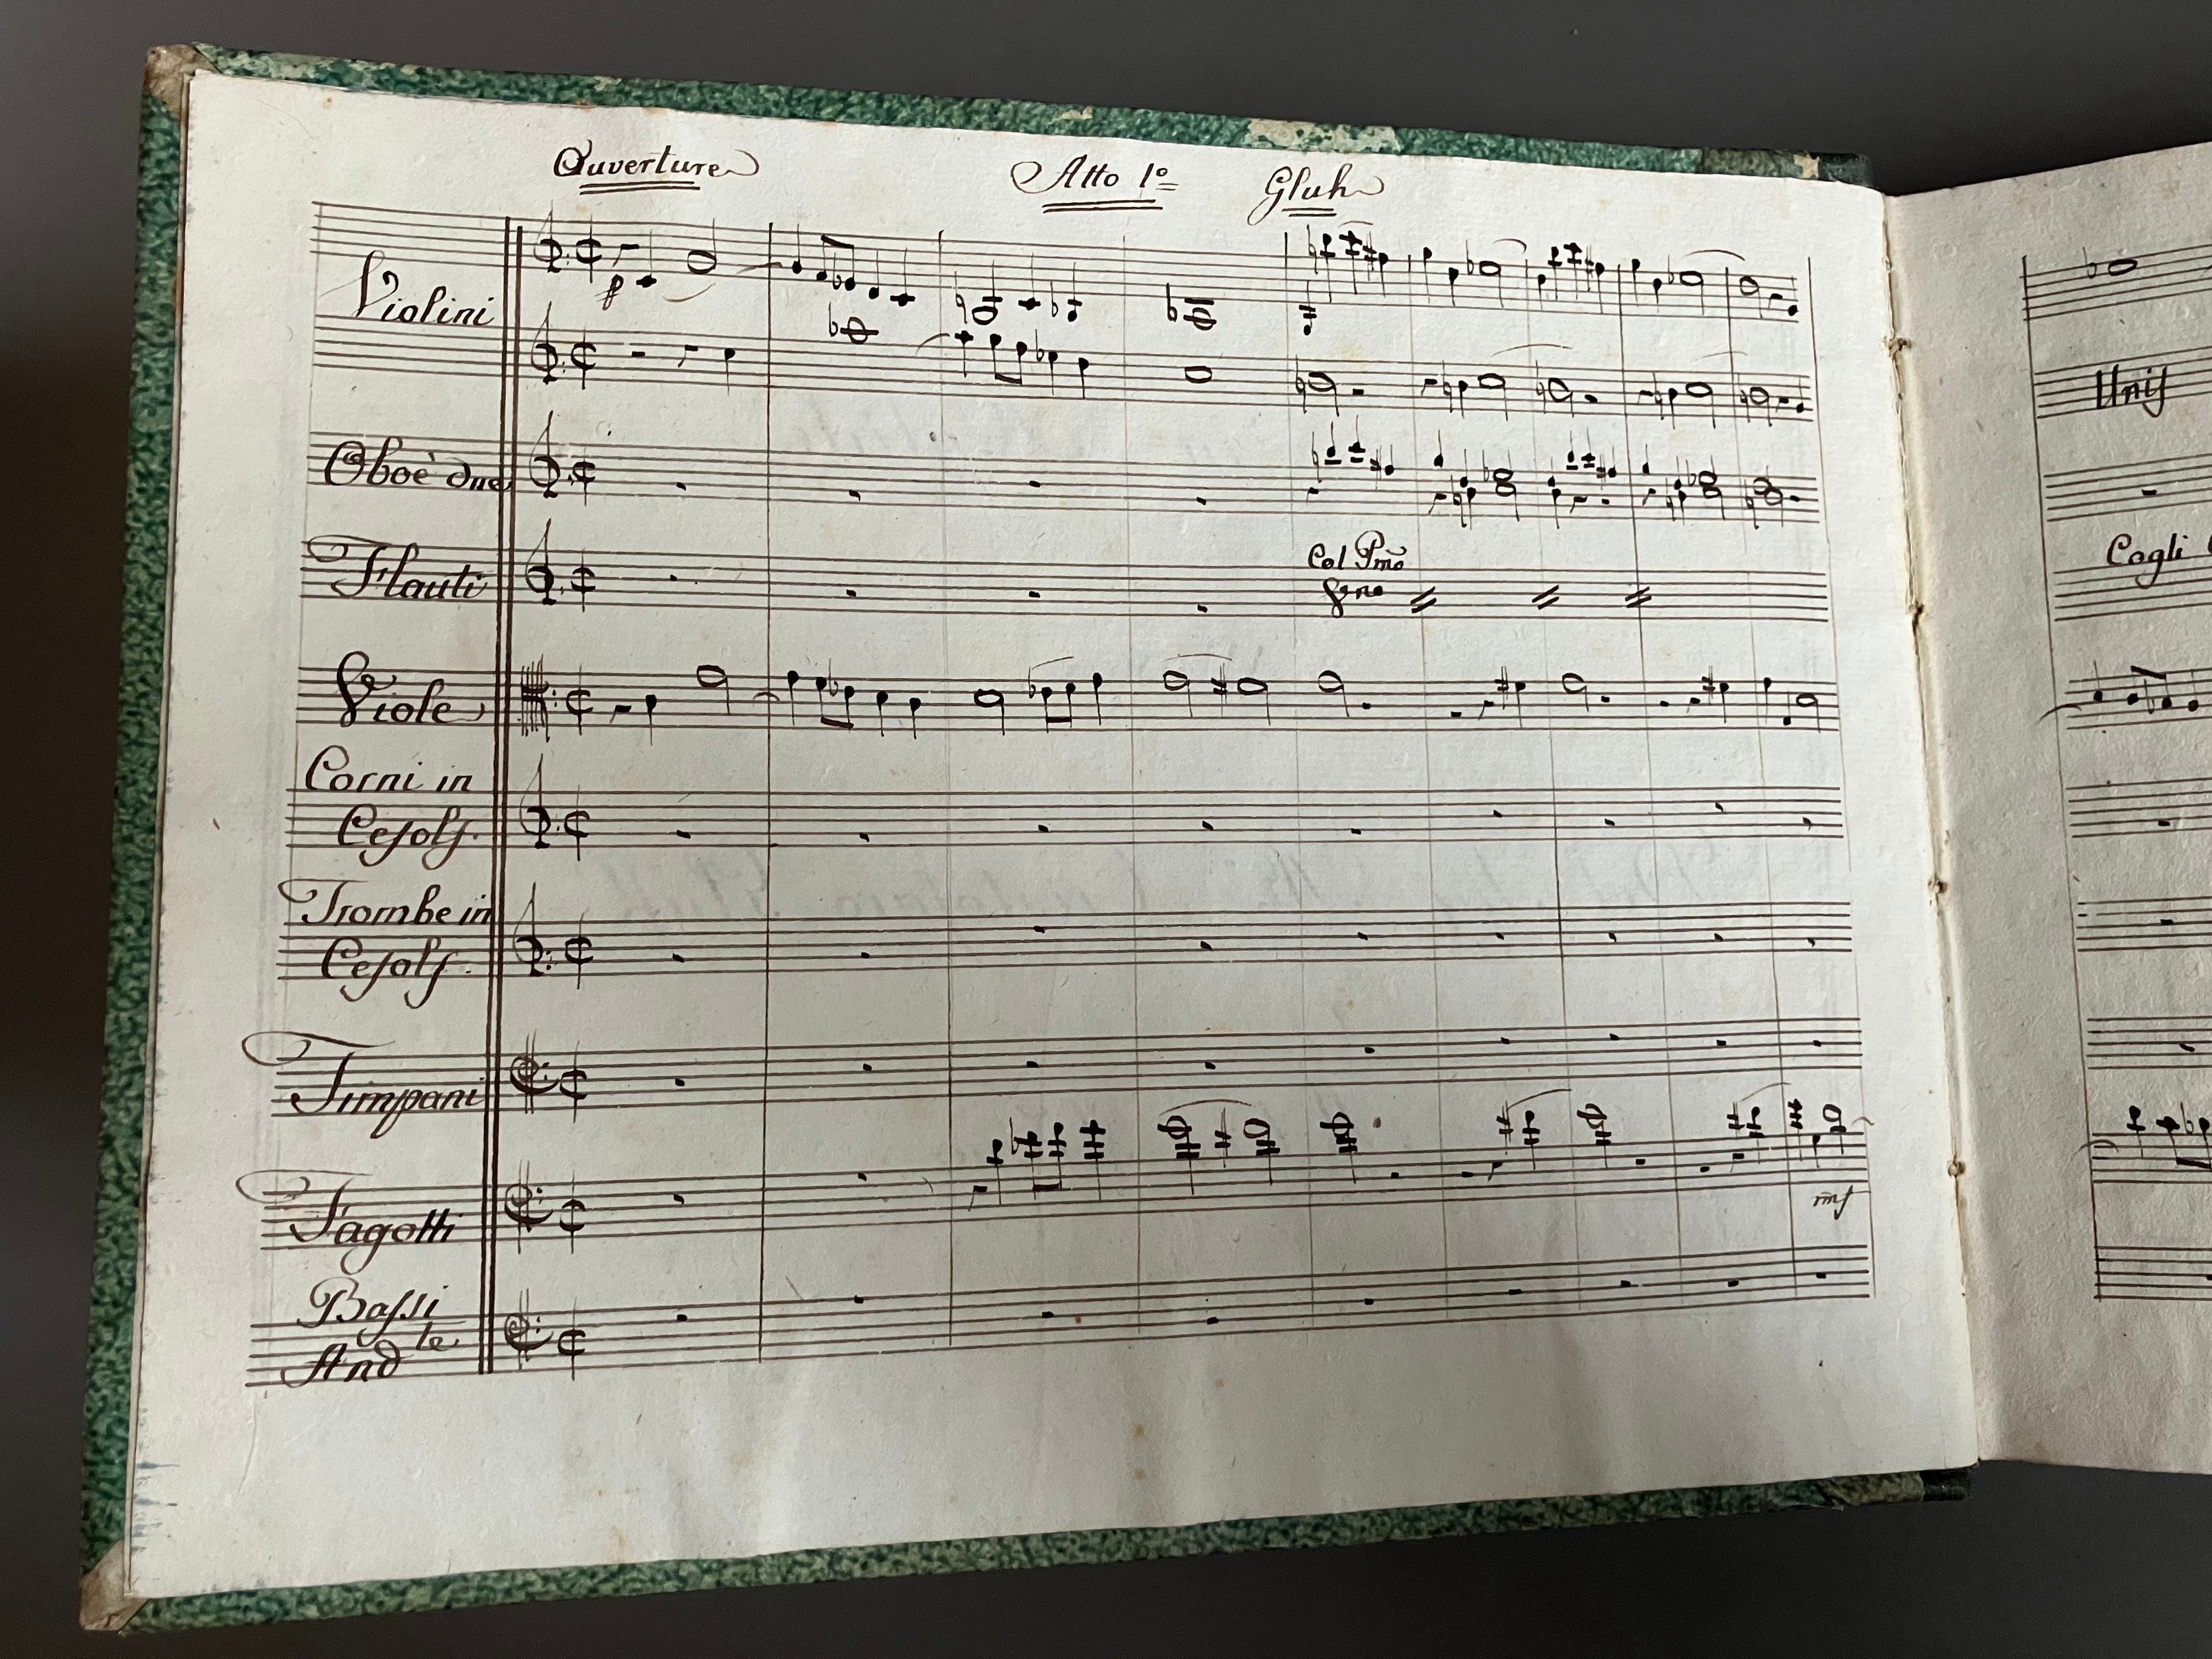 Ouverture Atto 1º Gluk
p
Violini
Unis
Oboè due
Flauti
Col Pmo
Cogli
Viole
Corni in
Cesolf.
Trombe in
Cesolf.
Timpani
Fagotti
Bassi
Andte